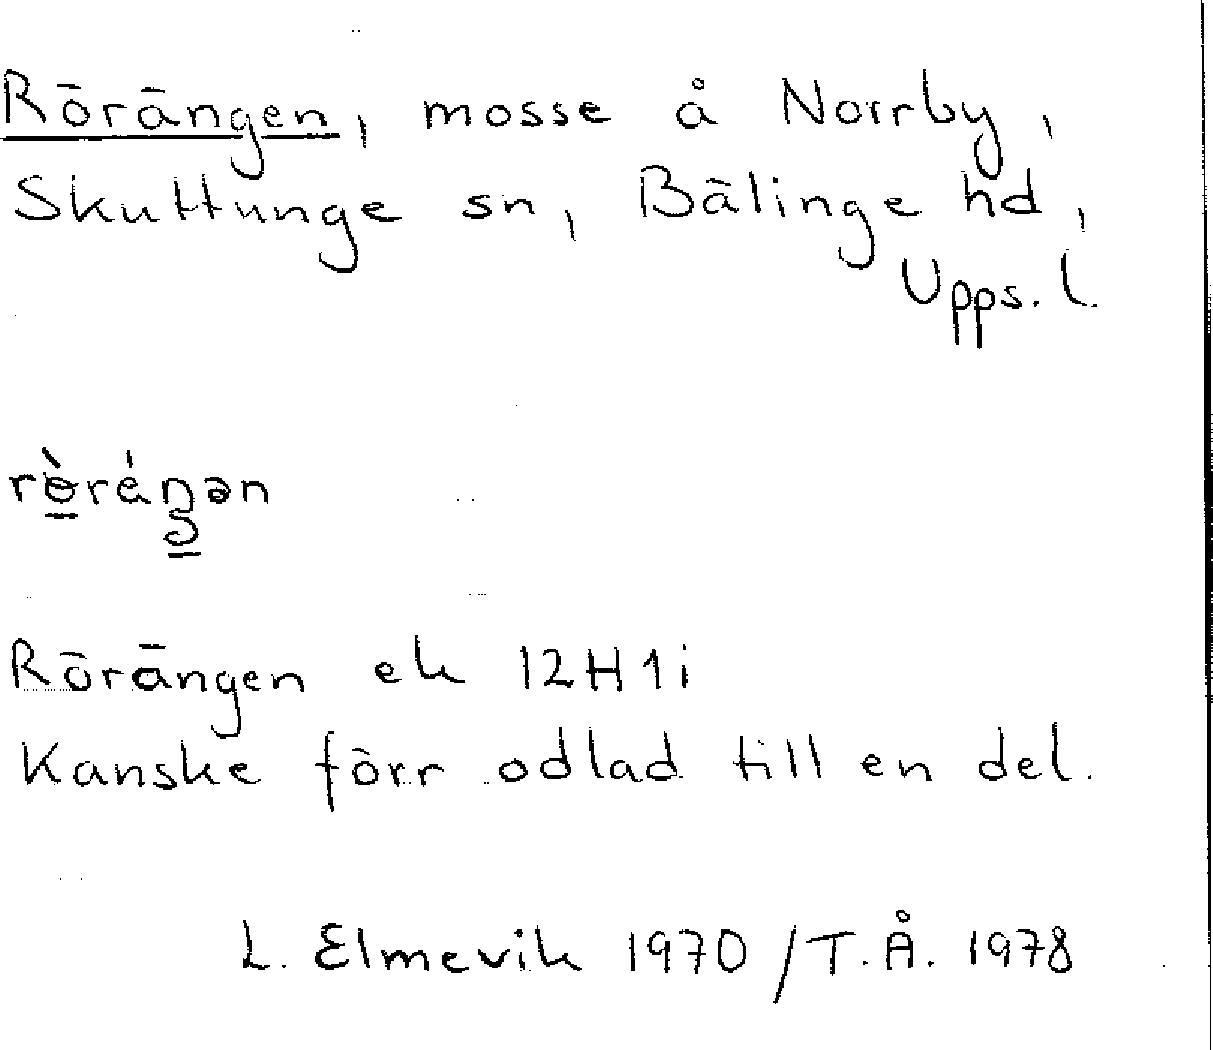 Rörängen, mosse å Norrby,
Skuttunge sn, Bälinge hd,
Upps. l.
Rörängen ek 12H1i
Kanske förr odlad till en del.
L. Elmevik 1970 / T.Å. 1978